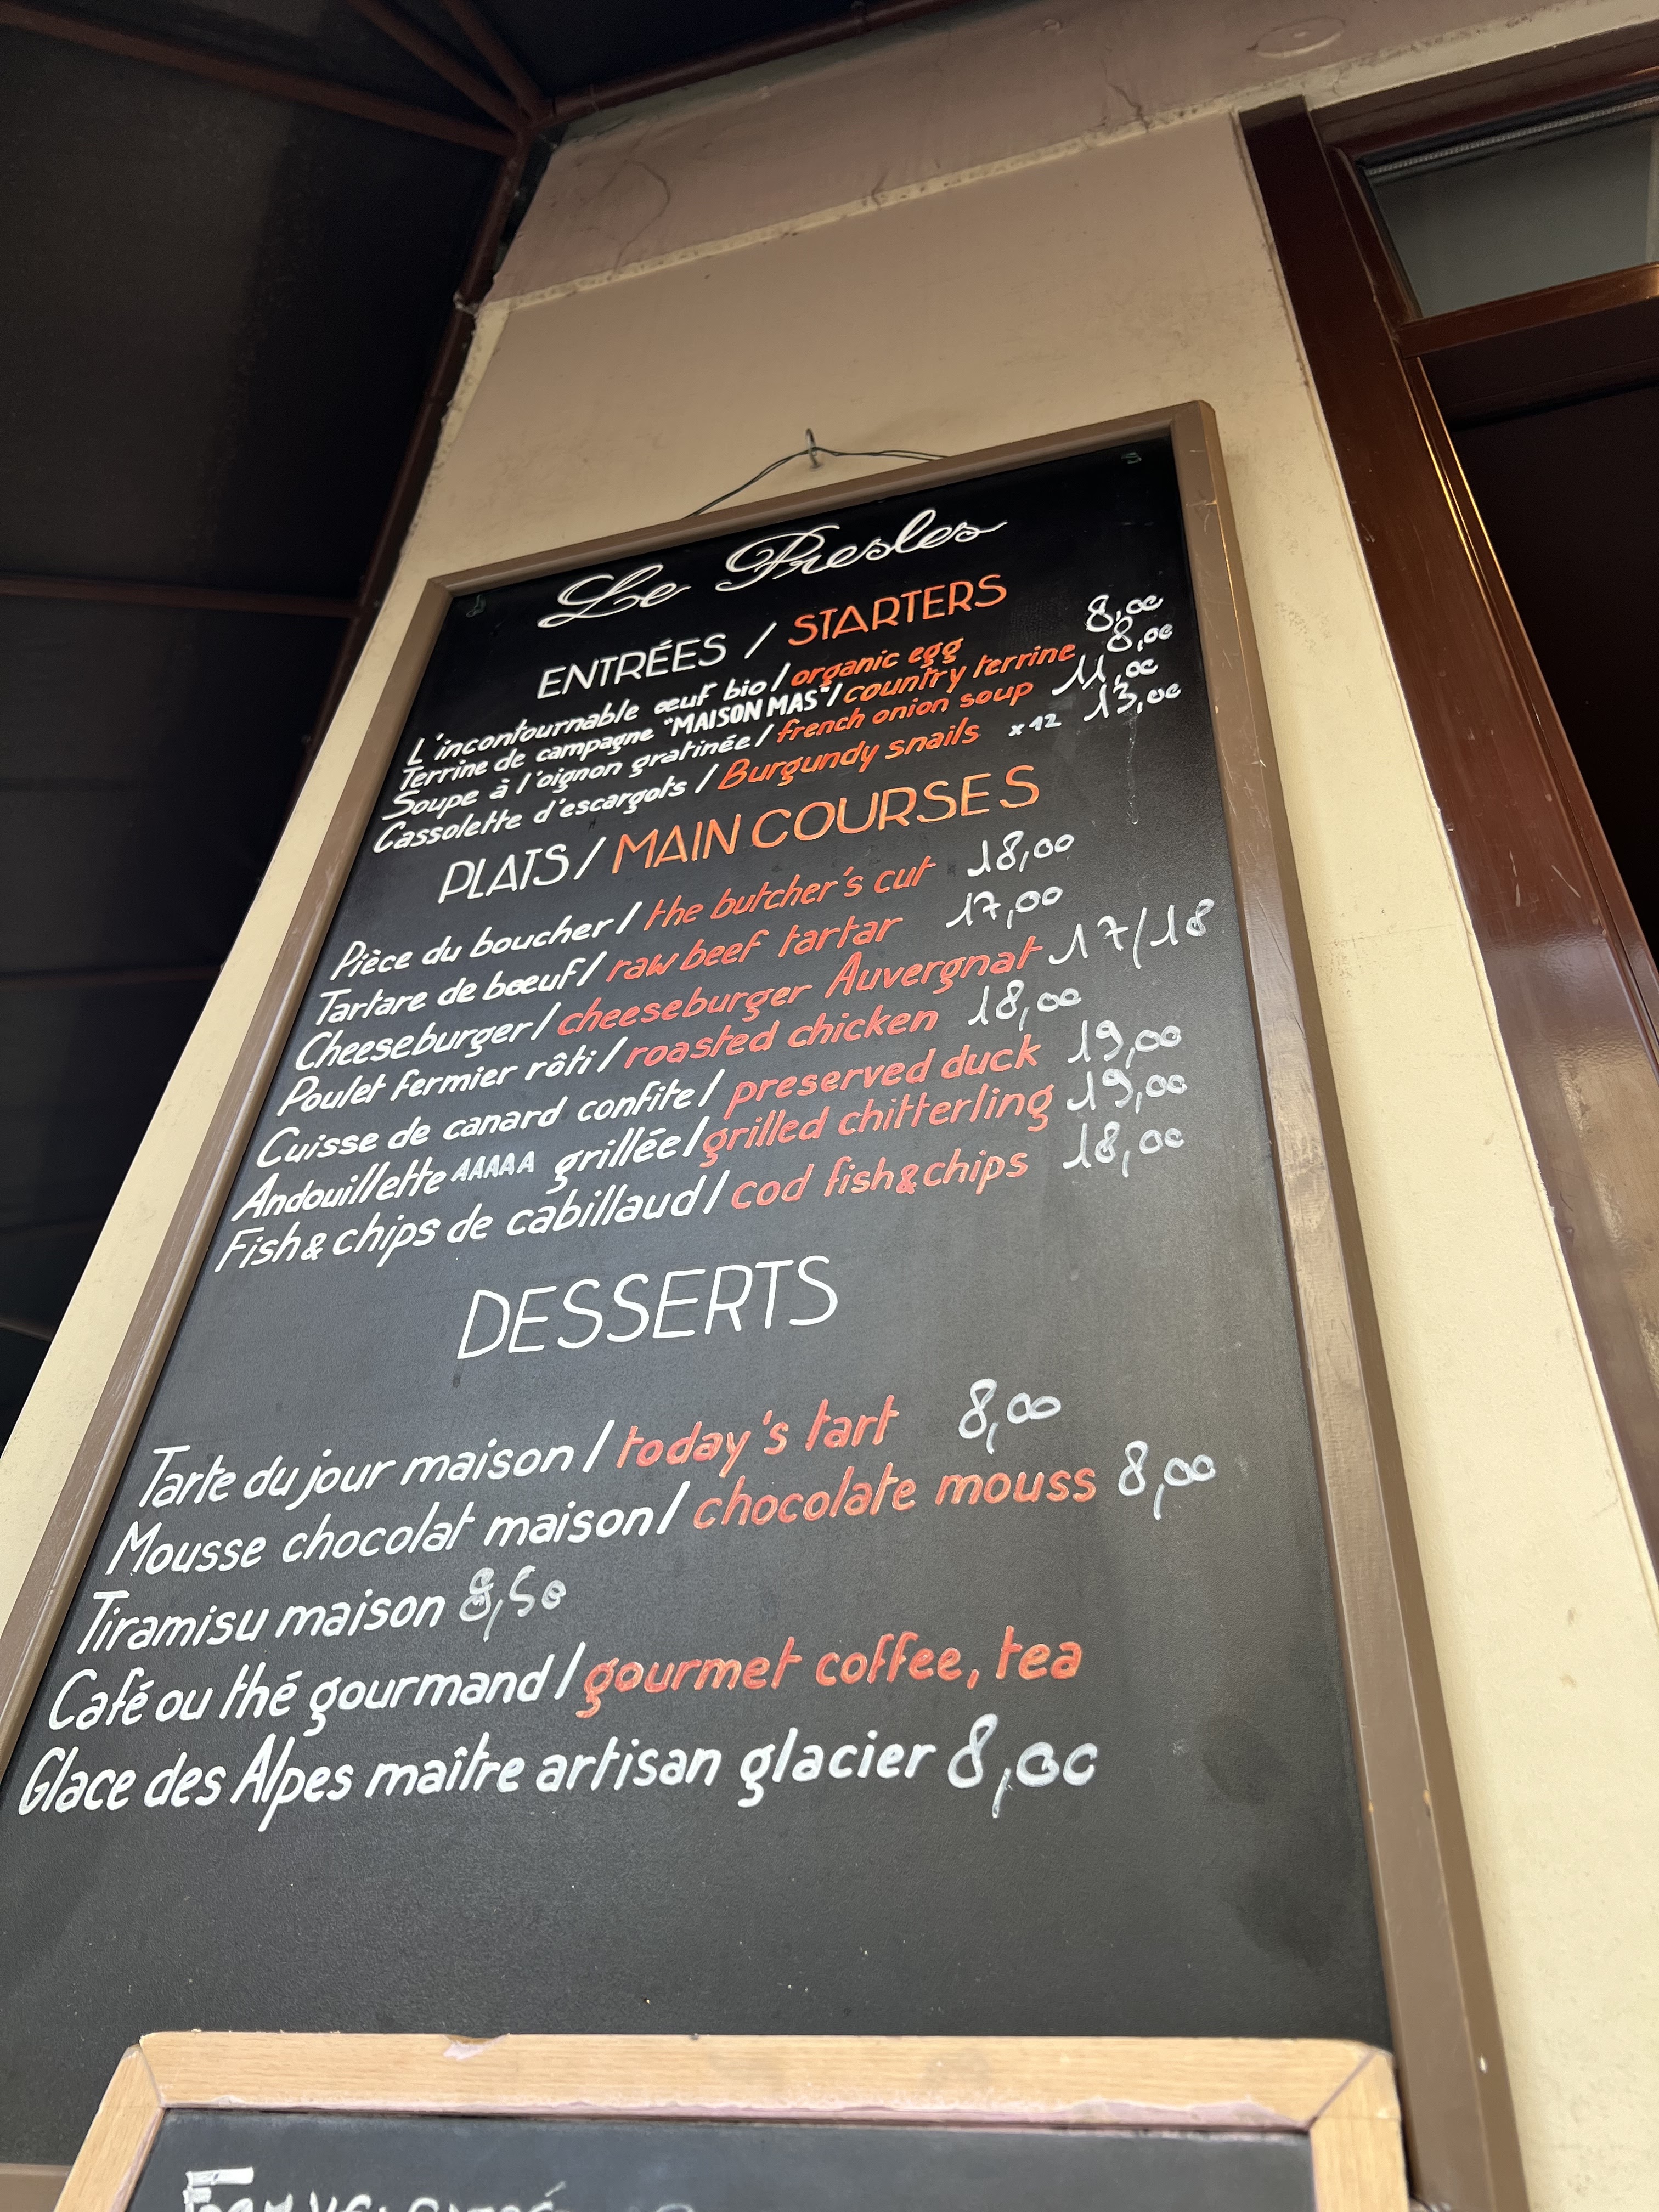 Le Presles
ENTRÉES / STARTERS
L'incontournable œuf bio / organic egg 8,00
Terrine de campagne "MAISON MAS" / country terrine 8,00
Soupe à l'oignon gratinée / french onion soup 11,00
Cassolette d'escargots / Burgundy snails x12 13,00
PLATS / MAIN COURSES
Pièce du boucher / the butcher's cut 18,00
Tartare de bœuf / raw beef tartar 17,00
Cheeseburger / cheeseburger Auvergnat 17/18
Poulet fermier rôti / roasted chicken 18,00
Cuisse de canard confite / preserved duck 19,00
Andouillette AAAAA grillée / grilled chitterling 19,00
Fish & chips de cabillaud / cod fish & chips 18,00
DESSERTS
Tarte du jour maison / today's tart 8,00
Mousse chocolat maison / chocolate mouss 8,00
Tiramisu maison 8,50
Café ou thé gourmand / gourmet coffee, tea
Glace des Alpes maître artisan glacier 8,00